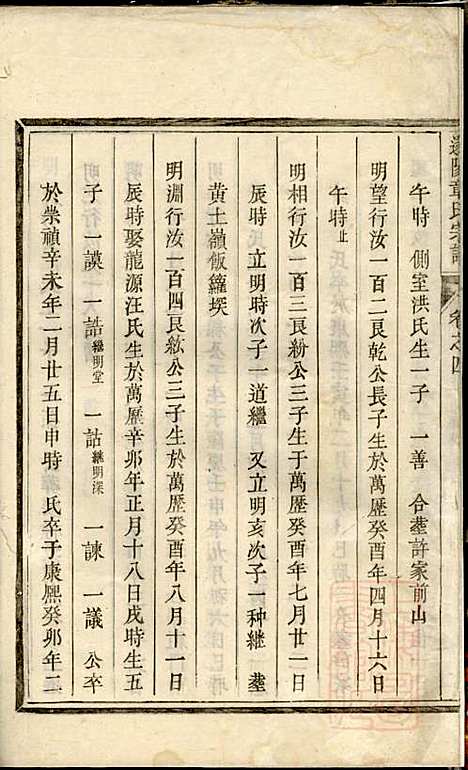 陽章氏宗譜 卷之四
午時 側室洪氏生一子 一善 合塟許家前山
明望行汝一百二艮乾公長子生於萬歷癸酉年四月十六日
午時止
明相行汝一百三艮紛公三子生于萬歷癸酉年七月廿一日
辰時 立明時次子一道繼 又立明亥次子一种繼 塟
黄土嶺飯籮墺
明淵行汝一百四艮紘公三子生於萬歷癸酉年八月十一日
辰時娶龍源汪氏生於萬歷辛卯年正月十八日戌時生五
子 一謨 一誥繼明堂 一詁継明深 一諫 一議 公卒
於崇禎辛未年二月廿五日申時 氏卒于康熙癸卯年二